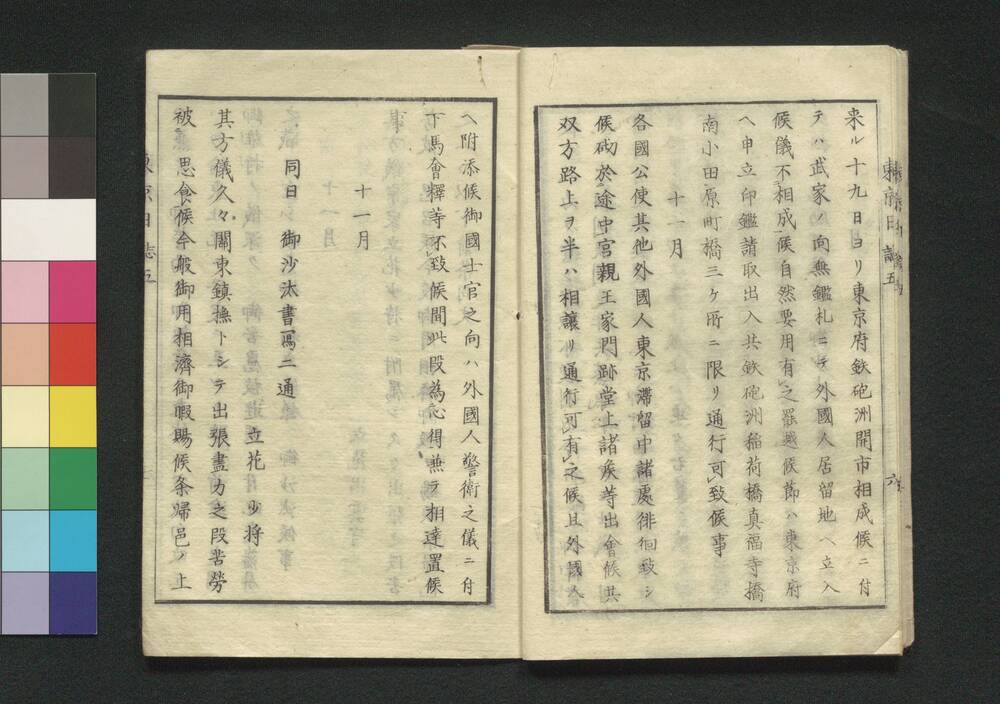 来ル十九日ヨリ東京府鉄砲洲開市相成候ニ付
テハ武家ノ向無鑑札ニテ外國人居留地ヘ立入
候儀不相成候自然要用有之罷越候節ハ東京府
ヘ申立印鑑請取出入共鉄砲洲稲荷橋真福寺橋
南小田原町橋三ケ所ニ限リ通行可致候事
十一月
各國公使其他外國人東京滞留中諸處徘徊致シ
候砌於途中宮親王家門跡堂上諸矦等出會候共
双方路上ヲ半ハ相譲リ通行可有之候且外國人
東京日誌五
六
ヘ附添候御國士官之向ハ外國人警衛之儀ニ付
下馬會釋等不致候間此段為心得兼テ相達置候
十一月
同日御沙汰書寫二通
立花少将
其方儀久々關東鎮撫トシテ出張盡力之段苦勞
被思食候今般御用相濟御暇賜候条歸邑ノ上
東京日誌五